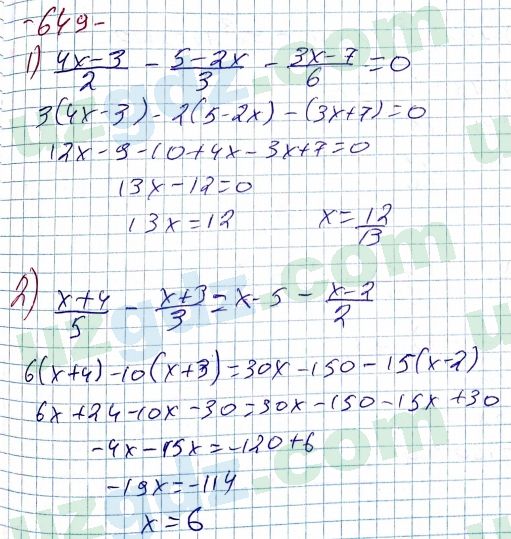 -649-
1) (4x-3)/2 - (5-2x)/3 - (3x-7)/6 = 0
3(4x-3) - 2(5-2x) - (3x+7) = 0
12x-9-10+4x-3x+7=0
13x-12=0
13x=12 x=12/13
2) (x+4)/5 - (x+3)/3 = x-5 - (x-2)/2
6(x+4)-10(x+3)=30x-150-15(x-2)
6x+24-10x-30=30x-150-15x+30
-4x-15x=-120+6
-19x=-114
x=6
uzgdz.com